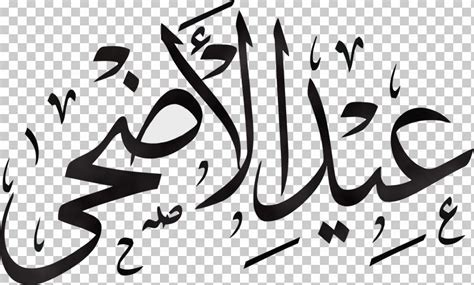 عِيدِ الْأَضْحَى